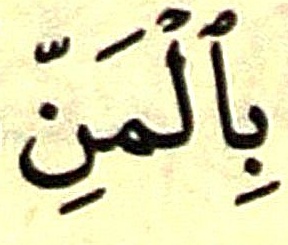 بِٱلْمَنِّ